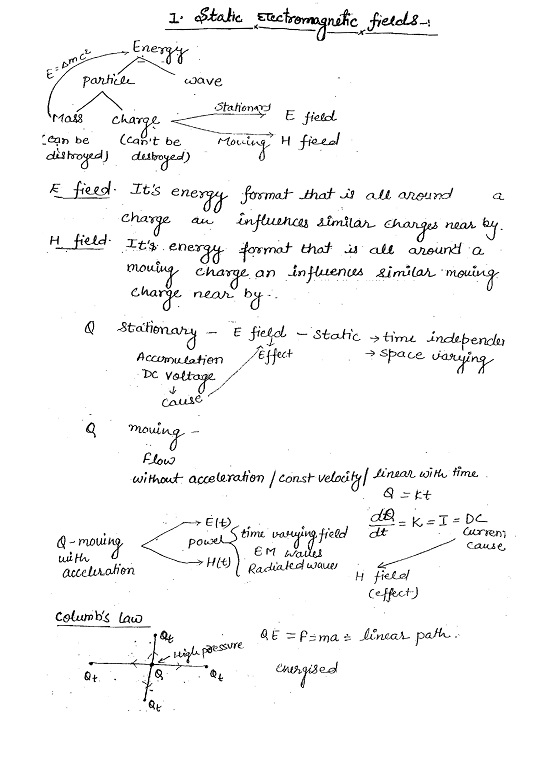 1. Static Electromagnetic fields -:
E=Δmc²
Energy
particle wave
Mass charge Stationary E field
(can be (can't be Moving H field
distroyed) destroyed)
E field. It's energy format that is all around a
charge an influences similar charges near by.
H field. It's energy format that is all around a
moving charge an influences similar moving
charge near by..
Q Stationary - E field - static → time independer
Accumulation Effect → space varying
DC voltage
↓
cause
Q moving -
Flow
without acceleration / const velocity / linear with time.
Q = kt
dQ/dt = K = I = DC
current
cause
Q-moving E(t) time varying field
with power EM waves
acceleration H(t) Radiated wave
H field
(effect)
Columb's Law
Qt High pressure QE = F = ma = linear path.
Qt Q Qt energised
Qt